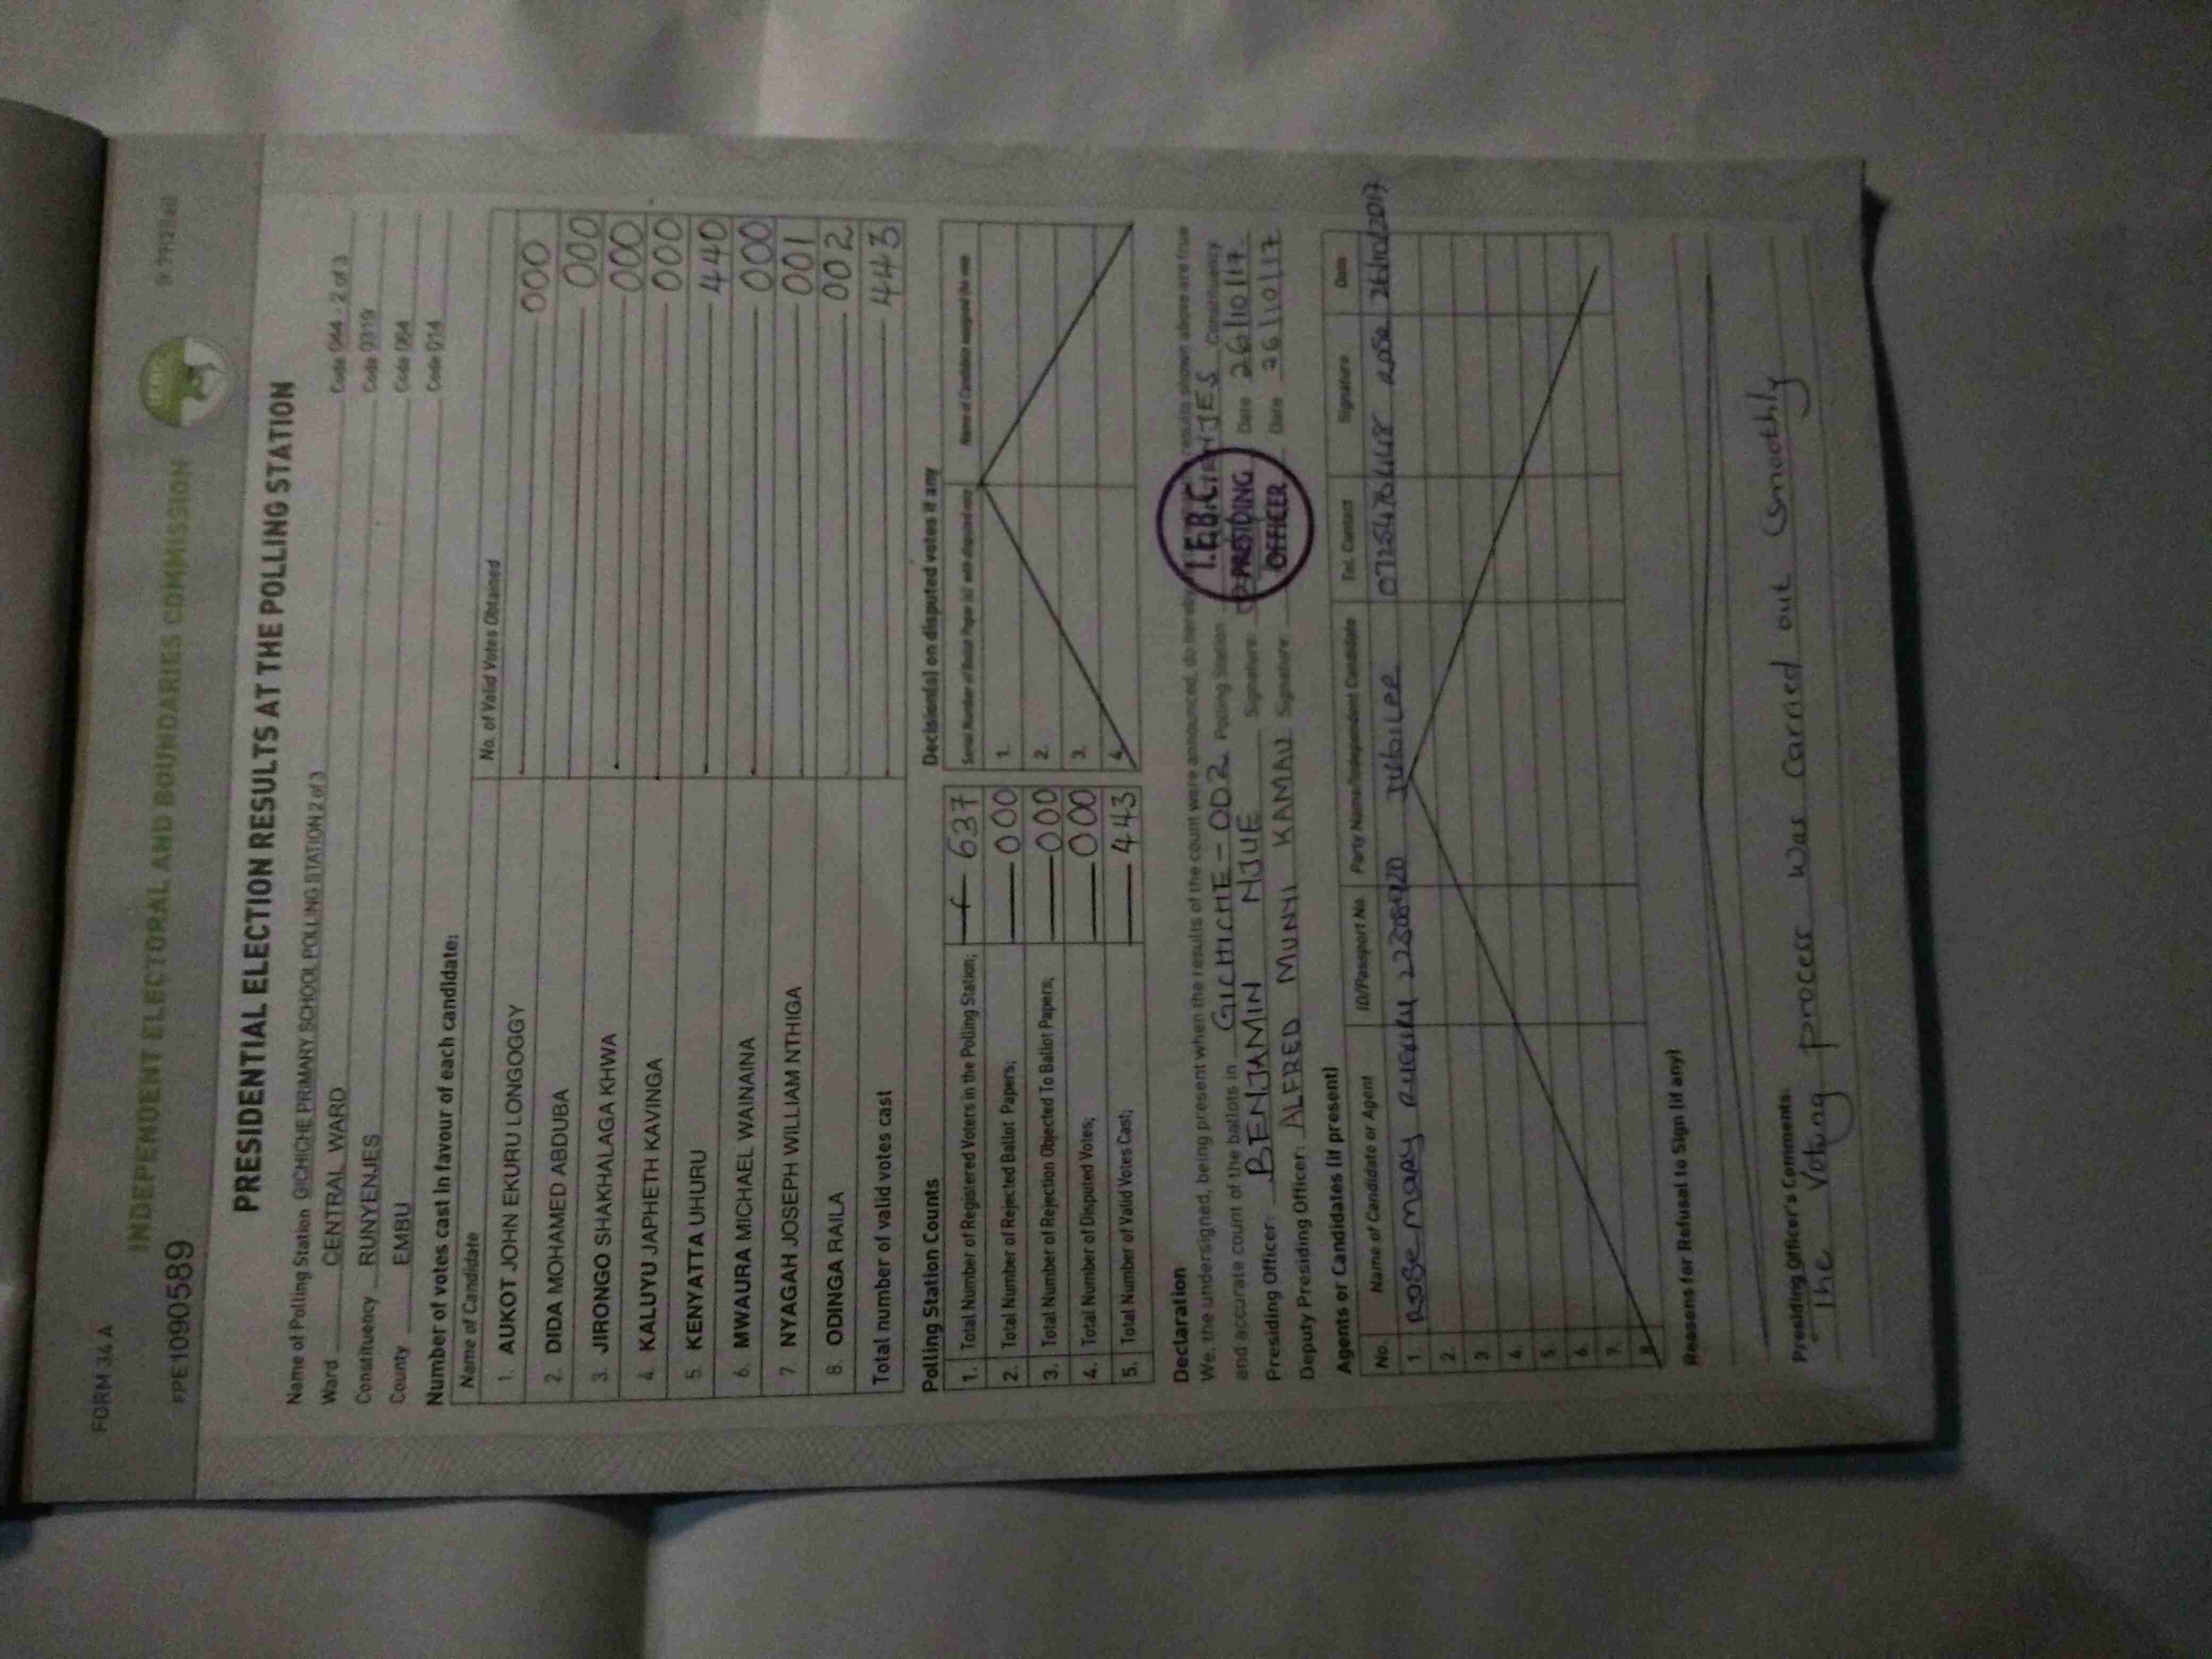 FORM 34 A
INDEPENDENT ELECTORAL AND BOUNDARIES COMMISSION
PPE1090589
PRESIDENTIAL ELECTION RESULTS AT THE POLLING STATION
Name of Polling Station GICHICHE PRIMARY SCHOOL POLLING STATION 2 of 3 Code 044 - 2 of 3
Ward CENTRAL WARD Code 0319
Constituency RUNYENJES Code 064
County EMBU Code 014
Number of votes cast in favour of each candidate:
Name of Candidate No. of Valid Votes Obtained
1. AUKOT JOHN EKURU LONGOGGY 000
2. DIDA MOHAMED ABDUBA 000
3. JIRONGO SHAKHALAGA KHWA 000
4. KALUYU JAPHETH KAVINGA 000
5. KENYATTA UHURU 440
6. MWAURA MICHAEL WAINAINA 000
7. NYAGAH JOSEPH WILLIAM NTHIGA 001
8. ODINGA RAILA 002
Total number of valid votes cast 443
Polling Station Counts
1. Total Number of Registered Voters in the Polling Station; 637
2. Total Number of Rejected Ballot Papers; 000
3. Total Number of Rejection Objected To Ballot Papers; 000
4. Total Number of Disputed Votes; 000
5. Total Number of Valid Votes Cast; 443
Decision(s) on disputed votes if any
Serial Number of Ballot Paper (s) with disputed vote Name of Candidate assigned the vote
1.
2.
3.
4.
Declaration
We, the undersigned, being present when the results of the count were announced, do hereby results shown above are true
and accurate count of the ballots in GICHICHE - 002 Polling Station Constituency
Presiding Officer: BENJAMIN NJUE Signature: Date 26/10/17
Deputy Presiding Officer: ALFRED MUNYI KAMAU Signature: Date 26/10/17
I.E.B.C
PRESIDING
OFFICER
Agents or Candidates (if present)
No. Name of Candidate or Agent ID/Passport No. Party Name/Independent Candidate Tel. Contact Signature Date
1. Rosemary Jubilee Rose 26/10/2017
2.
3.
4.
5.
6.
7.
8.
Reasons for Refusal to Sign (if any)
Presiding Officer's Comments:
The Voting process was Carried out Smoothly